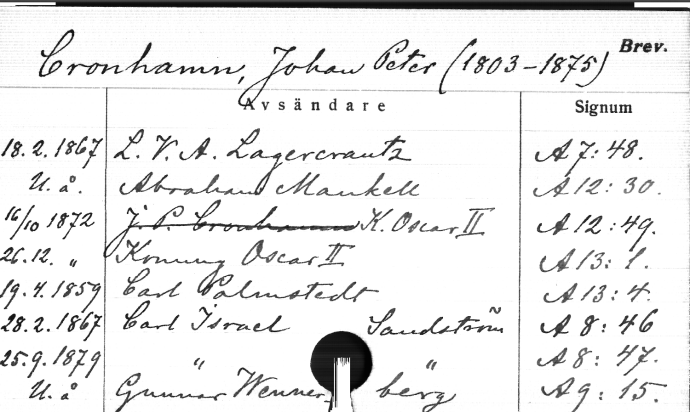 Cronhamn, Johan Peter (1803-1875) Brev.
Avsändare Signum
18.2.1867 L. V. A. Lagercrantz A 7:48.
U. å. Abraham Mankell A 12:30.
16/10 1872 J. P. Cronhamn K. Oscar II A 12:49.
26.12. „ Konung Oscar II A 13:1.
19.4.1859 Carl Palmstedt A 13:4.
28.2.1867 Carl Israel Sandström A 8:46
25.9.1879 " " A 8:47.
U. å Gunnar Wennerberg A 9:15.